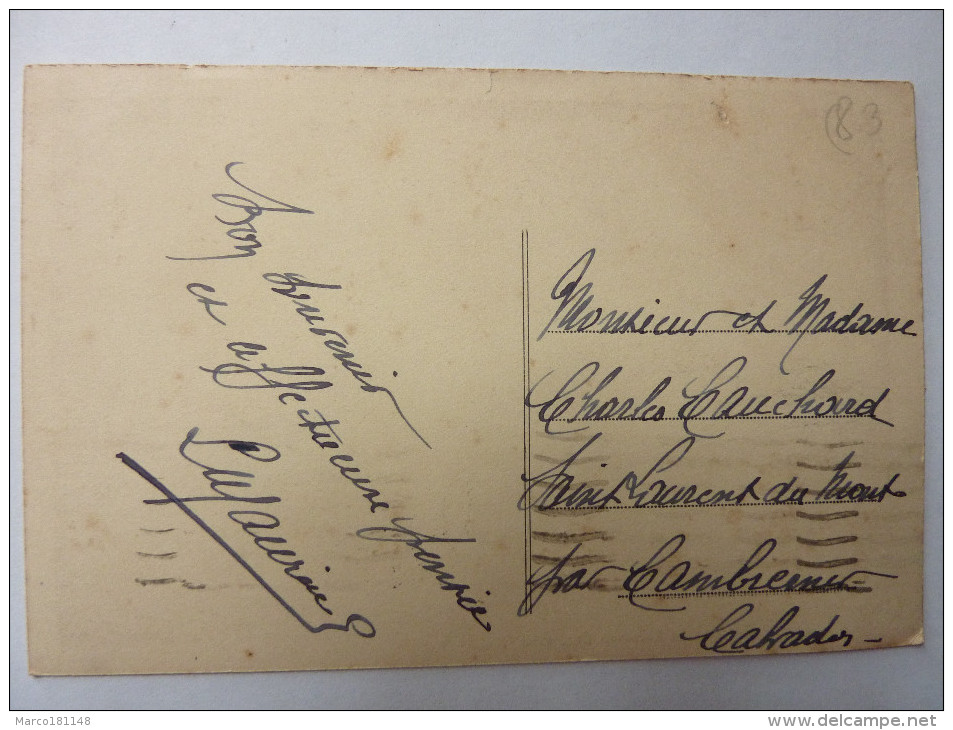 Bon Souvenir
et affectueuse pensée
83
Monsieur et Madame
Charles Cauchard
Saint Laurent du Mont
par Cambremer
Calvados
Marco181148
www.delcampe.net